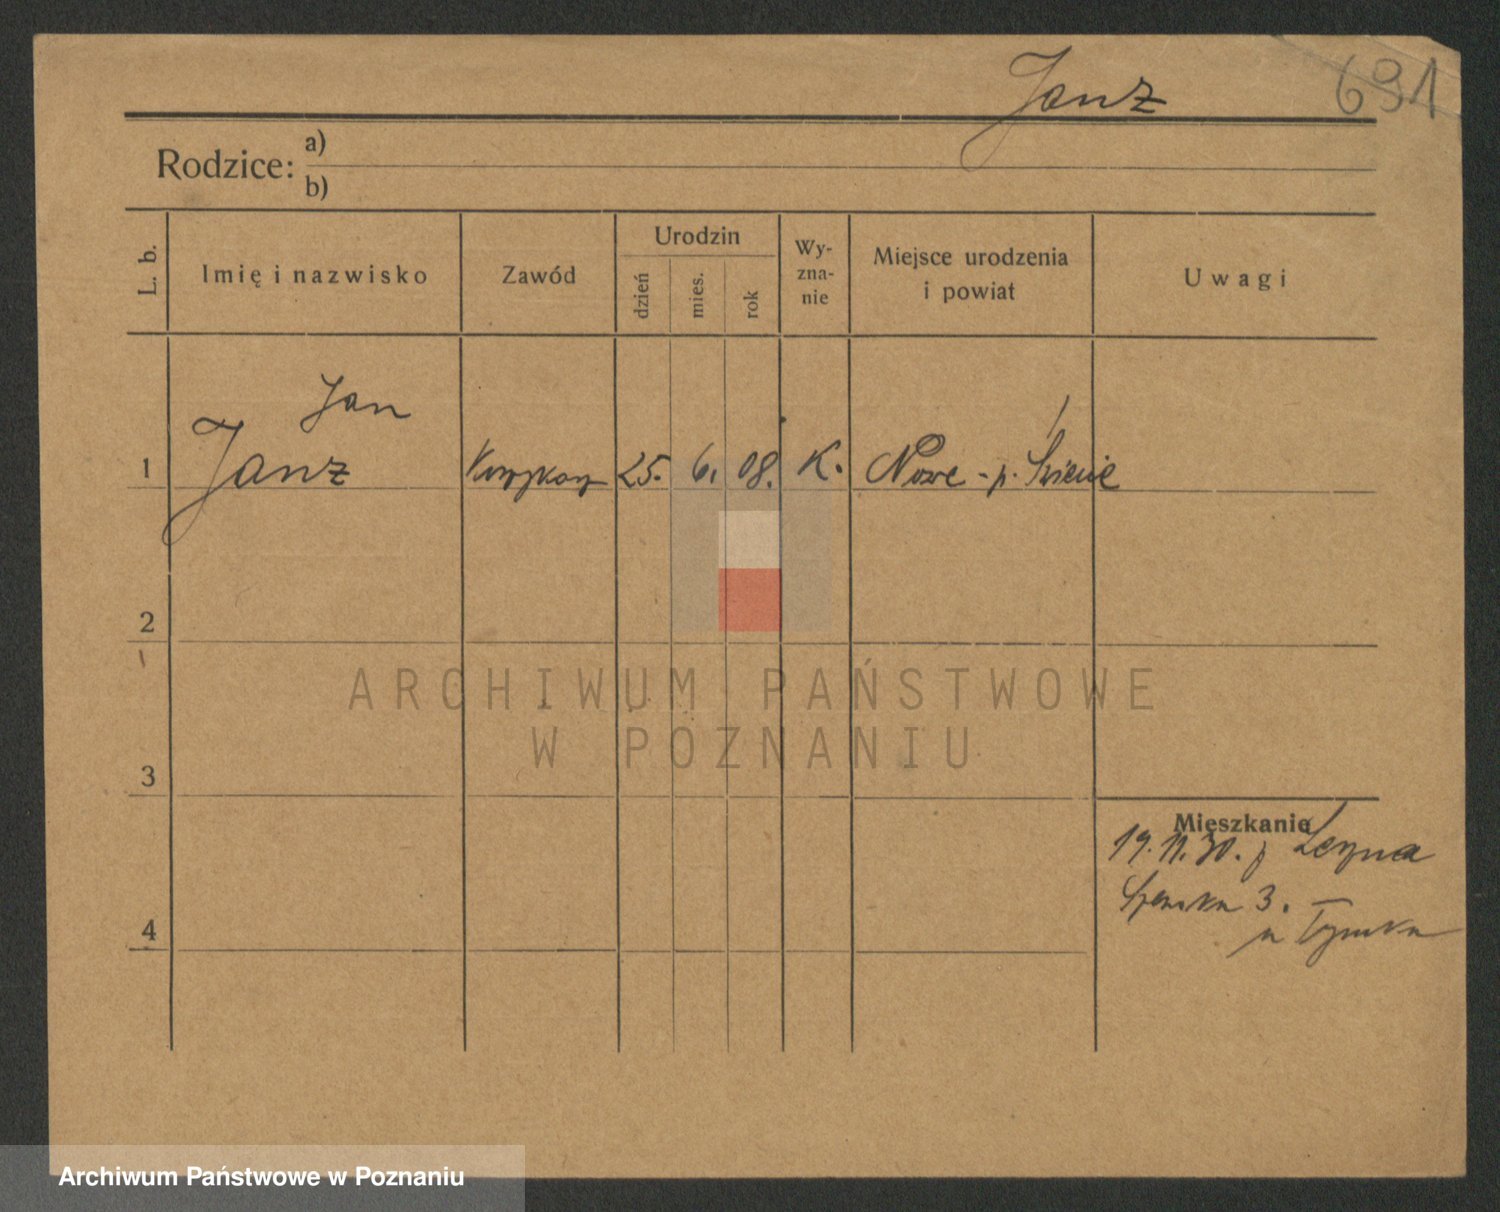 Janz 691
Rodzice: a)
b)
L. b.
Imię i nazwisko
Zawód
Urodzin
dzień
mies.
rok
Wy-
zna-
nie
Miejsce urodzenia
i powiat
Uwagi
Jan
1 Janz 25. 6. 08. K. Nowe - p. Świecie
2
3
4
Mieszkanie
19.11.30.
3.
ARCHIWUM PAŃSTWOWE
W POZNANIU
Archiwum Państwowe w Poznaniu